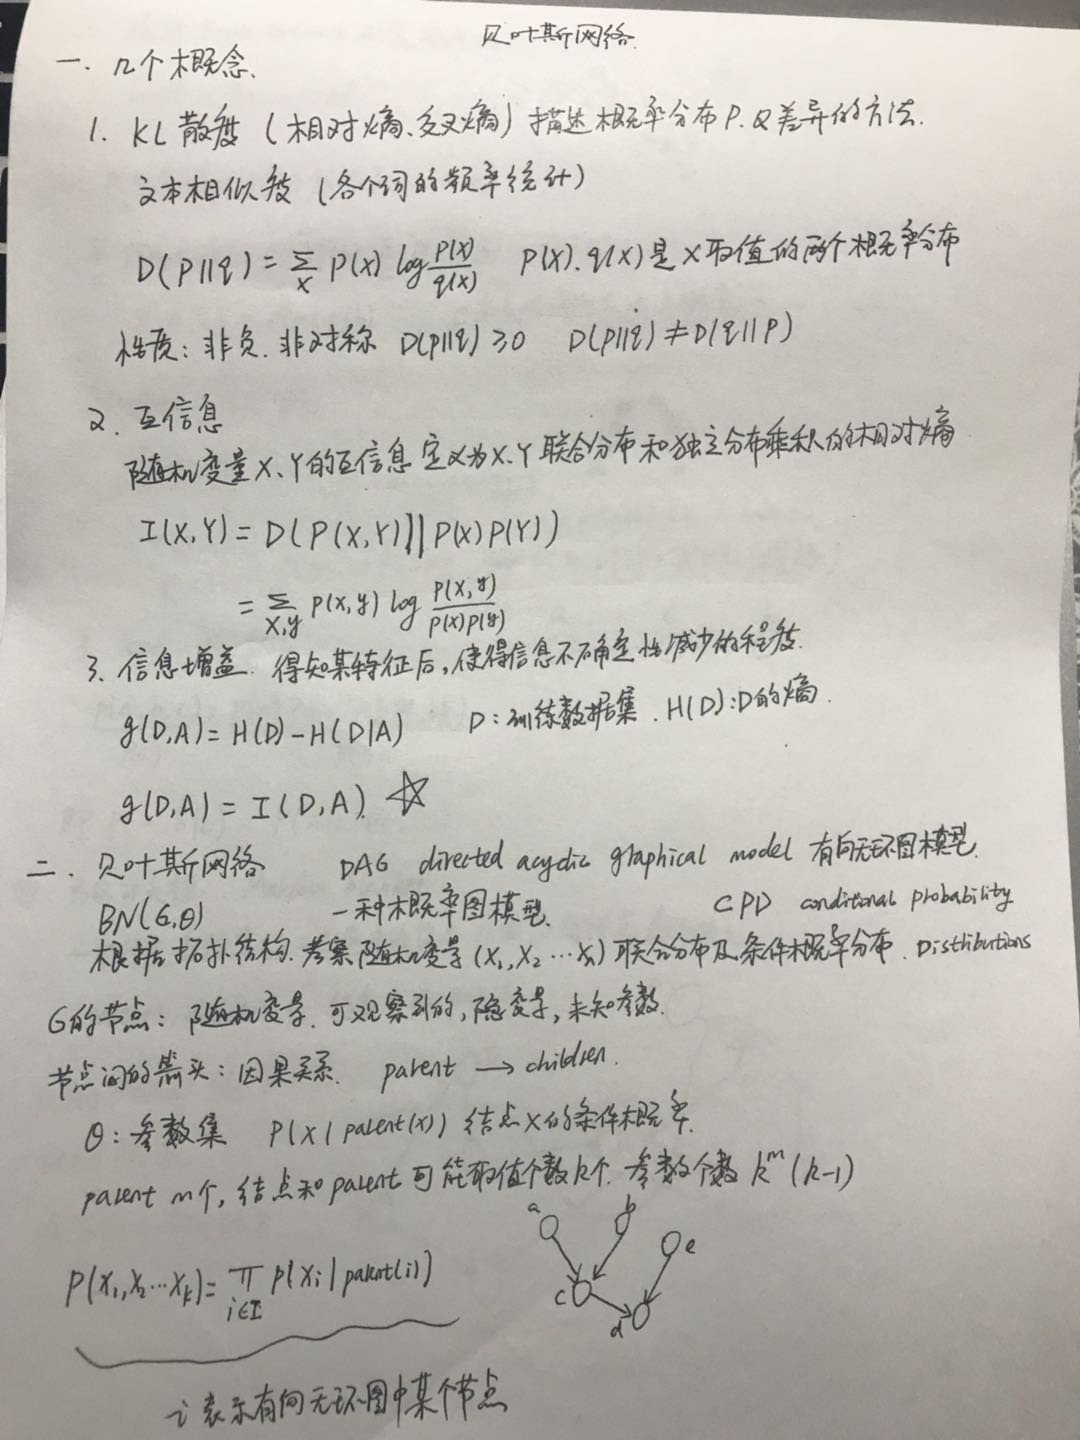 贝叶斯网络
一. 几个概念.
1. KL散度 (相对熵、交叉熵) 描述概率分布P.Q差异的方法.
文本相似度 (各个词的频率统计)
D(P||q) = Σ_x P(x) log P(x)/q(x)  P(x).q(x)是X取值的两个概率分布
性质: 非负. 非对称 D(p||q) ≥0  D(p||q) ≠ D(q||p)
2. 互信息
随机变量X、Y的互信息定义为X、Y联合分布和独立分布乘积的相对熵
I(X,Y) = D(P(X,Y)||P(X)P(Y))
= Σ_{x,y} P(x,y) log P(x,y)/P(x)P(y)
3. 信息增益. 得知某特征后,使得信息不确定性减少的程度.
g(D,A) = H(D) - H(D|A)  D:训练数据集. H(D):D的熵.
g(D,A) = I(D,A). ☆
二. 贝叶斯网络  DAG directed acyclic graphical model 有向无环图模型.
BN(G,Θ)  一种概率图模型.  CPD conditional probability
根据拓扑结构.考察随机变量(X₁,X₂…Xₙ)联合分布及条件概率分布. Distributions
G的节点: 随机变量. 可观察到的,隐变量,未知参数.
节点间的箭头: 因果关系. parent → children.
θ: 参数集  P(X|parent(x)) 结点X的条件概率.
parent m个, 结点和parent可能取值个数k个. 参数个数 k^m(k-1)
a b
e
P(X₁,X₂…Xₖ)= ∏_{i∈I} P(Xi|parent(i))
c
d
i表示有向无环图中某个节点